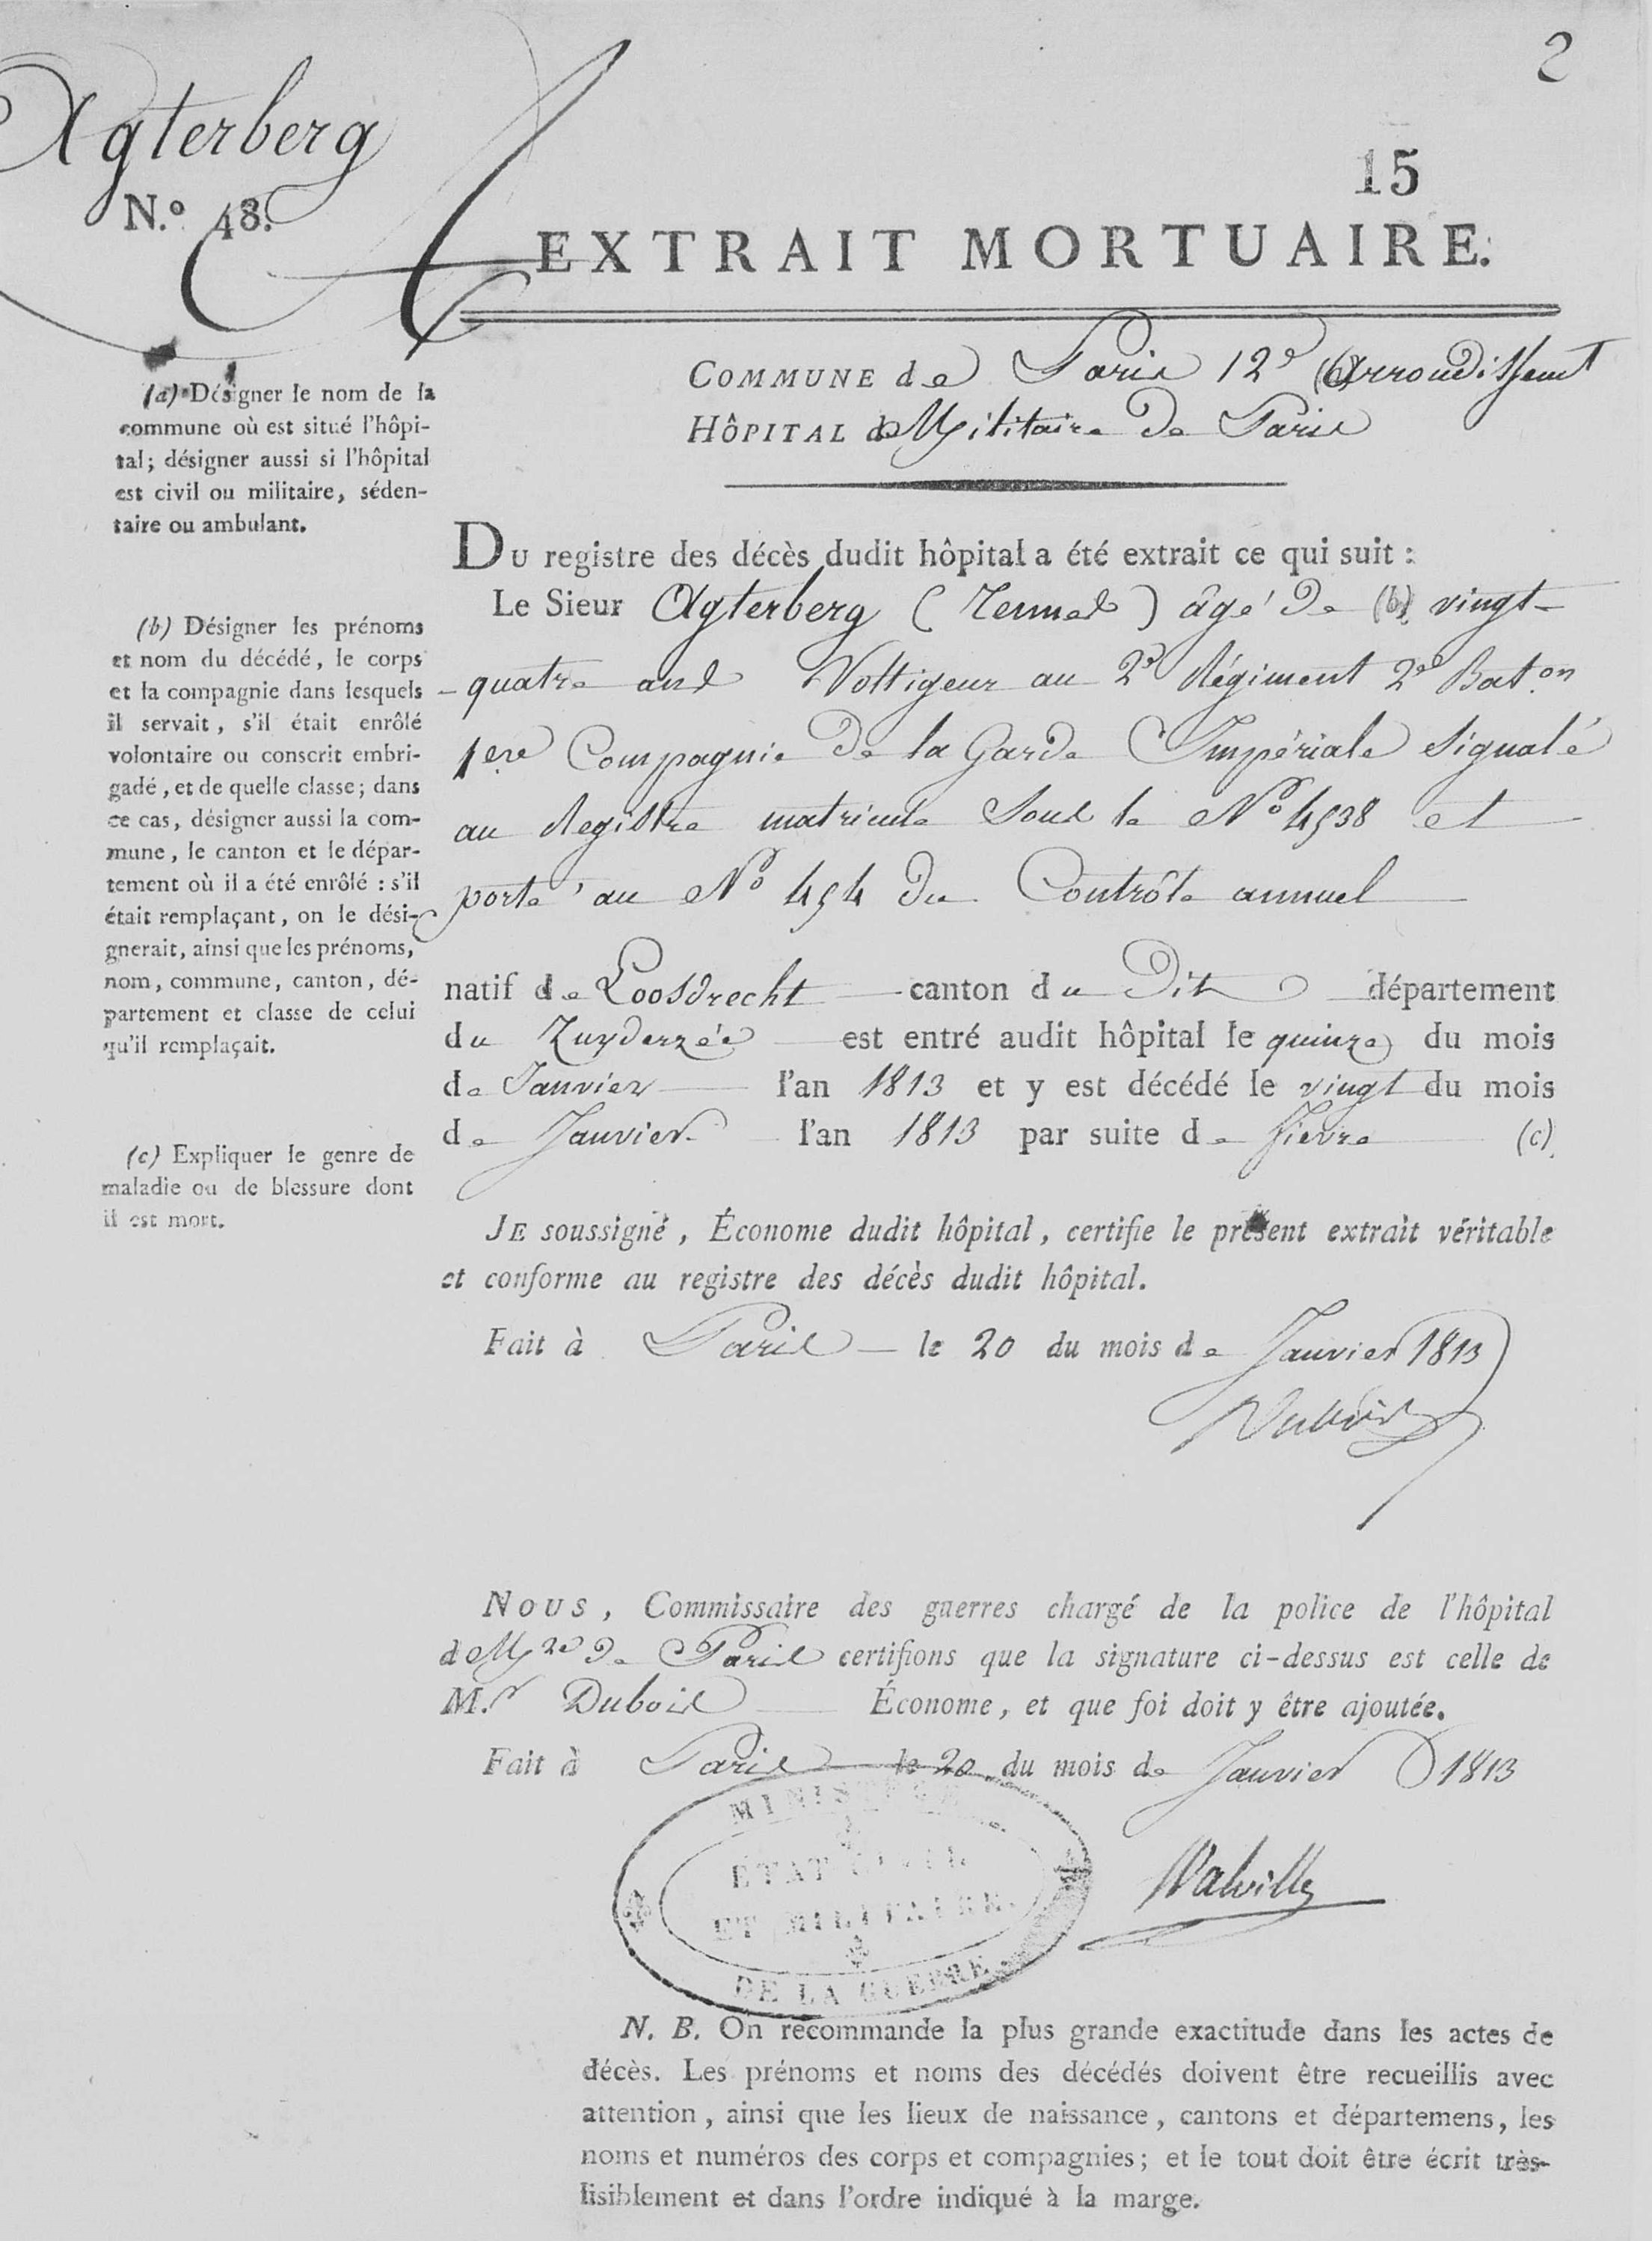 2
Agterberg
15
N.º 48.
EXTRAIT MORTUAIRE.
COMMUNE de Paris 12e Arrondissemt
HÔPITAL de Militaire de Paris
(a) Désigner le nom de la
commune où est situé l'hôpi-
tal; désigner aussi si l'hôpital
est civil ou militaire, séden-
taire ou ambulant.
(b) Désigner les prénoms
et nom du décédé, le corps
et la compagnie dans lesquels
il servait, s'il était enrôlé
volontaire ou conscrit embri-
gadé, et de quelle classe; dans
ce cas, désigner aussi la com-
mune, le canton et le dépar-
tement où il a été enrôlé : s'il
était remplaçant, on le dési-
gnerait, ainsi que les prénoms,
nom, commune, canton, dé-
partement et classe de celui
qu'il remplaçait.
(c) Expliquer le genre de
maladie ou de blessure dont
il est mort.
DU registre des décès dudit hôpital a été extrait ce qui suit :
Le Sieur Agterberg ( ) âgé de (b) vingt-
- quatre ans Voltigeur au 2e Régiment 2e Baton
1ere Compagnie de la Garde Impériale Signalé
au Registre matricule Sous le No 4538 et
porté au No 454 du Contrôle annuel
natif de Loosdrecht canton du Dit département
du Zuyderzée est entré audit hôpital le quinze du mois
de Janvier l'an 1813 et y est décédé le vingt du mois
de Janvier l'an 1813 par suite de fievre (c)
JE soussigné, Économe dudit hôpital, certifie le présent extrait véritable
et conforme au registre des décès dudit hôpital.
Fait à Paris le 20 du mois de Janvier 1813
Dubois
NOUS, Commissaire des guerres chargé de la police de l'hôpital
de Mre de Paris certifions que la signature ci-dessus est celle de
M.r Dubois Économe, et que foi doit y être ajoutée.
Fait à Paris le 20 du mois de Janvier 1813
MINISTÈRE
ÉTAT CIVIL
ET MILITAIRE
DE LA GUERRE
Valville
N. B. On recommande la plus grande exactitude dans les actes de
décès. Les prénoms et noms des décédés doivent être recueillis avec
attention, ainsi que les lieux de naissance, cantons et départemens, les
noms et numéros des corps et compagnies; et le tout doit être écrit très-
lisiblement et dans l'ordre indiqué à la marge.